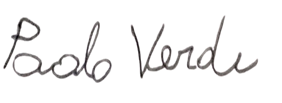 Paolo Verdi